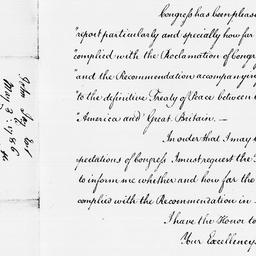 Congress has been please
"report particularly and specially how far
"complied with the Proclamation of Congr
"and the Recommendation accompanying
"to the definitive Treaty of Peace between
"America and Great Britain. —
In order that I may
pectations of Congress I must request the
to inform me whether and how far the
complied with the Recommendation in
I have the Honor to
Your Excellency's
John Jay Esqr
May 3d: 1786